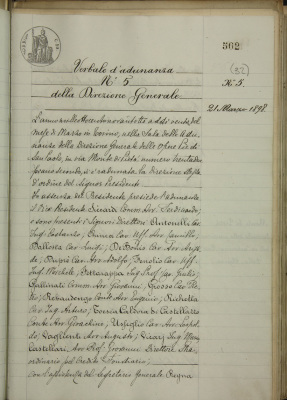 562
(32)
Verbale d'adunanza
N.° 5
della Direzione Generale
N.° 5.
21 Marzo 1898
L'anno milleottocentonovantotto a dì ventuno del
mese di Marzo in Torino, nella Sala delle adu-
nanze della Direzione Generale delle Opere Pie di
San Paolo, in via Monte di Pietà, numero trentadue
piano secondo, si è radunata la Direzione stessa
d'ordine del Signor Presidente.
In assenza del Presidente presiede l'adunanza
il Vice Presidente Comm. Avv. Ferdinando;
e sono presenti i Signori Direttori:
Ing. Costanzo; Cav. Uff. Avv. Camillo;
Cav. Luigi; Cav. Avv.
do; Cav. Avv. Adolfo; Cav. Uff.
Ing. Michele; Ing. Prof. Cav. Giulio;
Comm. Avv. Giovanni; Grosso Cav. Pie-
tro; Rebaudengo Conte Avv. Eugenio;
Cav. Ing. Arturo; di Castellazzo
Conte Avv. Gioachino; Usseglio Cav. Avv. Leopol-
do; Avv. Augusto; Ing.
Castellari Avv. Prof. Giovanni Direttore
ordinario pel Credito Fondiario;
Con l'assistenza del Segretario Generale